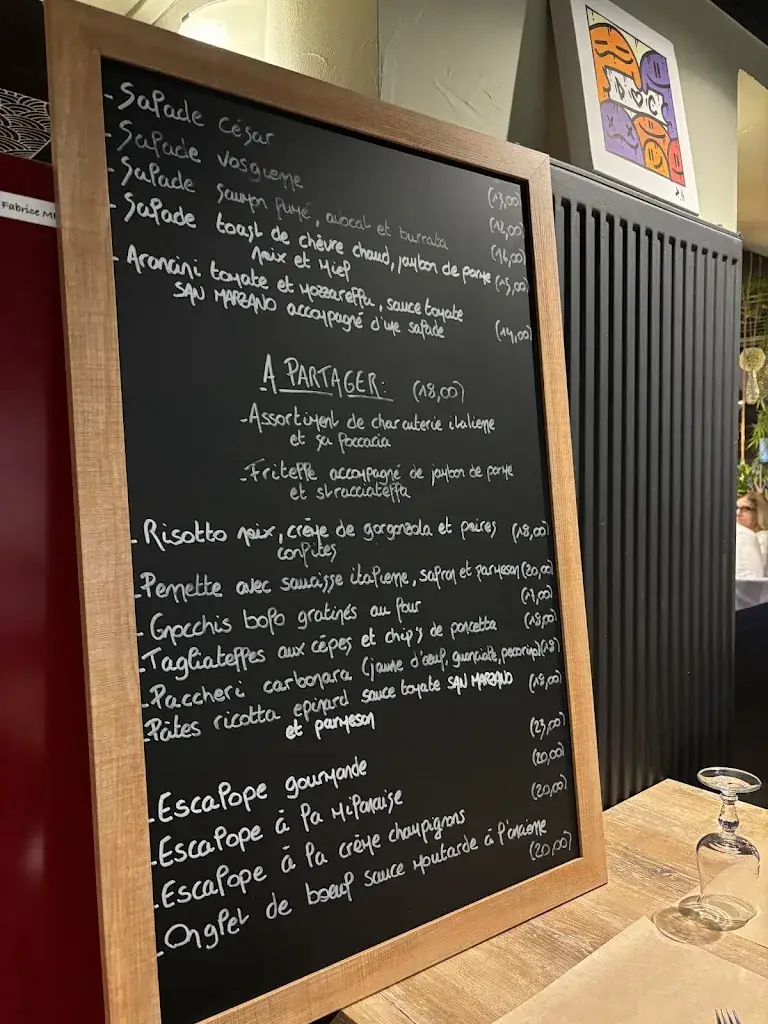 Fabrice M
DOC
- Salade César (13,00)
- Salade vosgienne (12,00)
- Salade saumon fumé, avocat et burrata (16,00)
- Salade toast de chèvre chaud, jambon de parme (15,00)
noix et miel
- Arancini tomate et mozzarella, sauce tomate
SAN MARZANO accompagné d'une salade (14,00)
A PARTAGER: (18,00)
- Assortiment de charcuterie italienne
et sa foccacia
- Fritelle accompagné de jambon de parme
et stracciatella
- Risotto noix, crème de gorgonzola et poires (18,00)
confites
- Pennette avec saucisse italienne, safran et parmesan (20,00)
- Gnocchis bolo gratinés au four (17,00)
- Tagliatelles aux cèpes et chip's de pancetta (18,00)
- Paccheri carbonara (jaune d'oeuf, guanciale, pecorino) (18)
- Pâtes ricotta epinard sauce tomate SAN MARZANO (18,00)
et parmesan
- Escalope gourmande (23,00)
- Escalope à la milanaise (20,00)
- Escalope à la crème champignons (20,00)
- Onglet de boeuf sauce moutarde à l'ancienne (20,00)